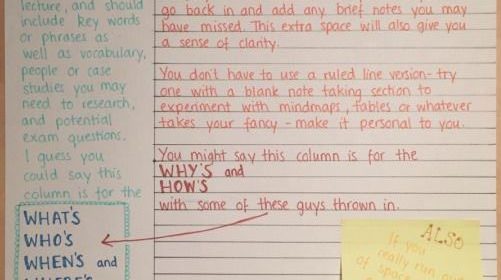 lecture, and should
include key words
or phrases as
well as vocabulary,
people or case
studies you may
need to research,
and potential
exam questions.
I guess you
could say this
column is for the
WHAT'S
WHO'S
WHEN'S and
WHERE'S
go back in and add any brief notes you may
have missed. This extra space will also give you
a sense of clarity.
You don't have to use a ruled line version - try
one with a blank note taking section to
experiment with mindmaps, tables or whatever
takes your fancy - make it personal to you.
You might say this column is for the
WHY'S and
HOW'S
with some of these guys thrown in.
ALSO
If you
really run out
of space